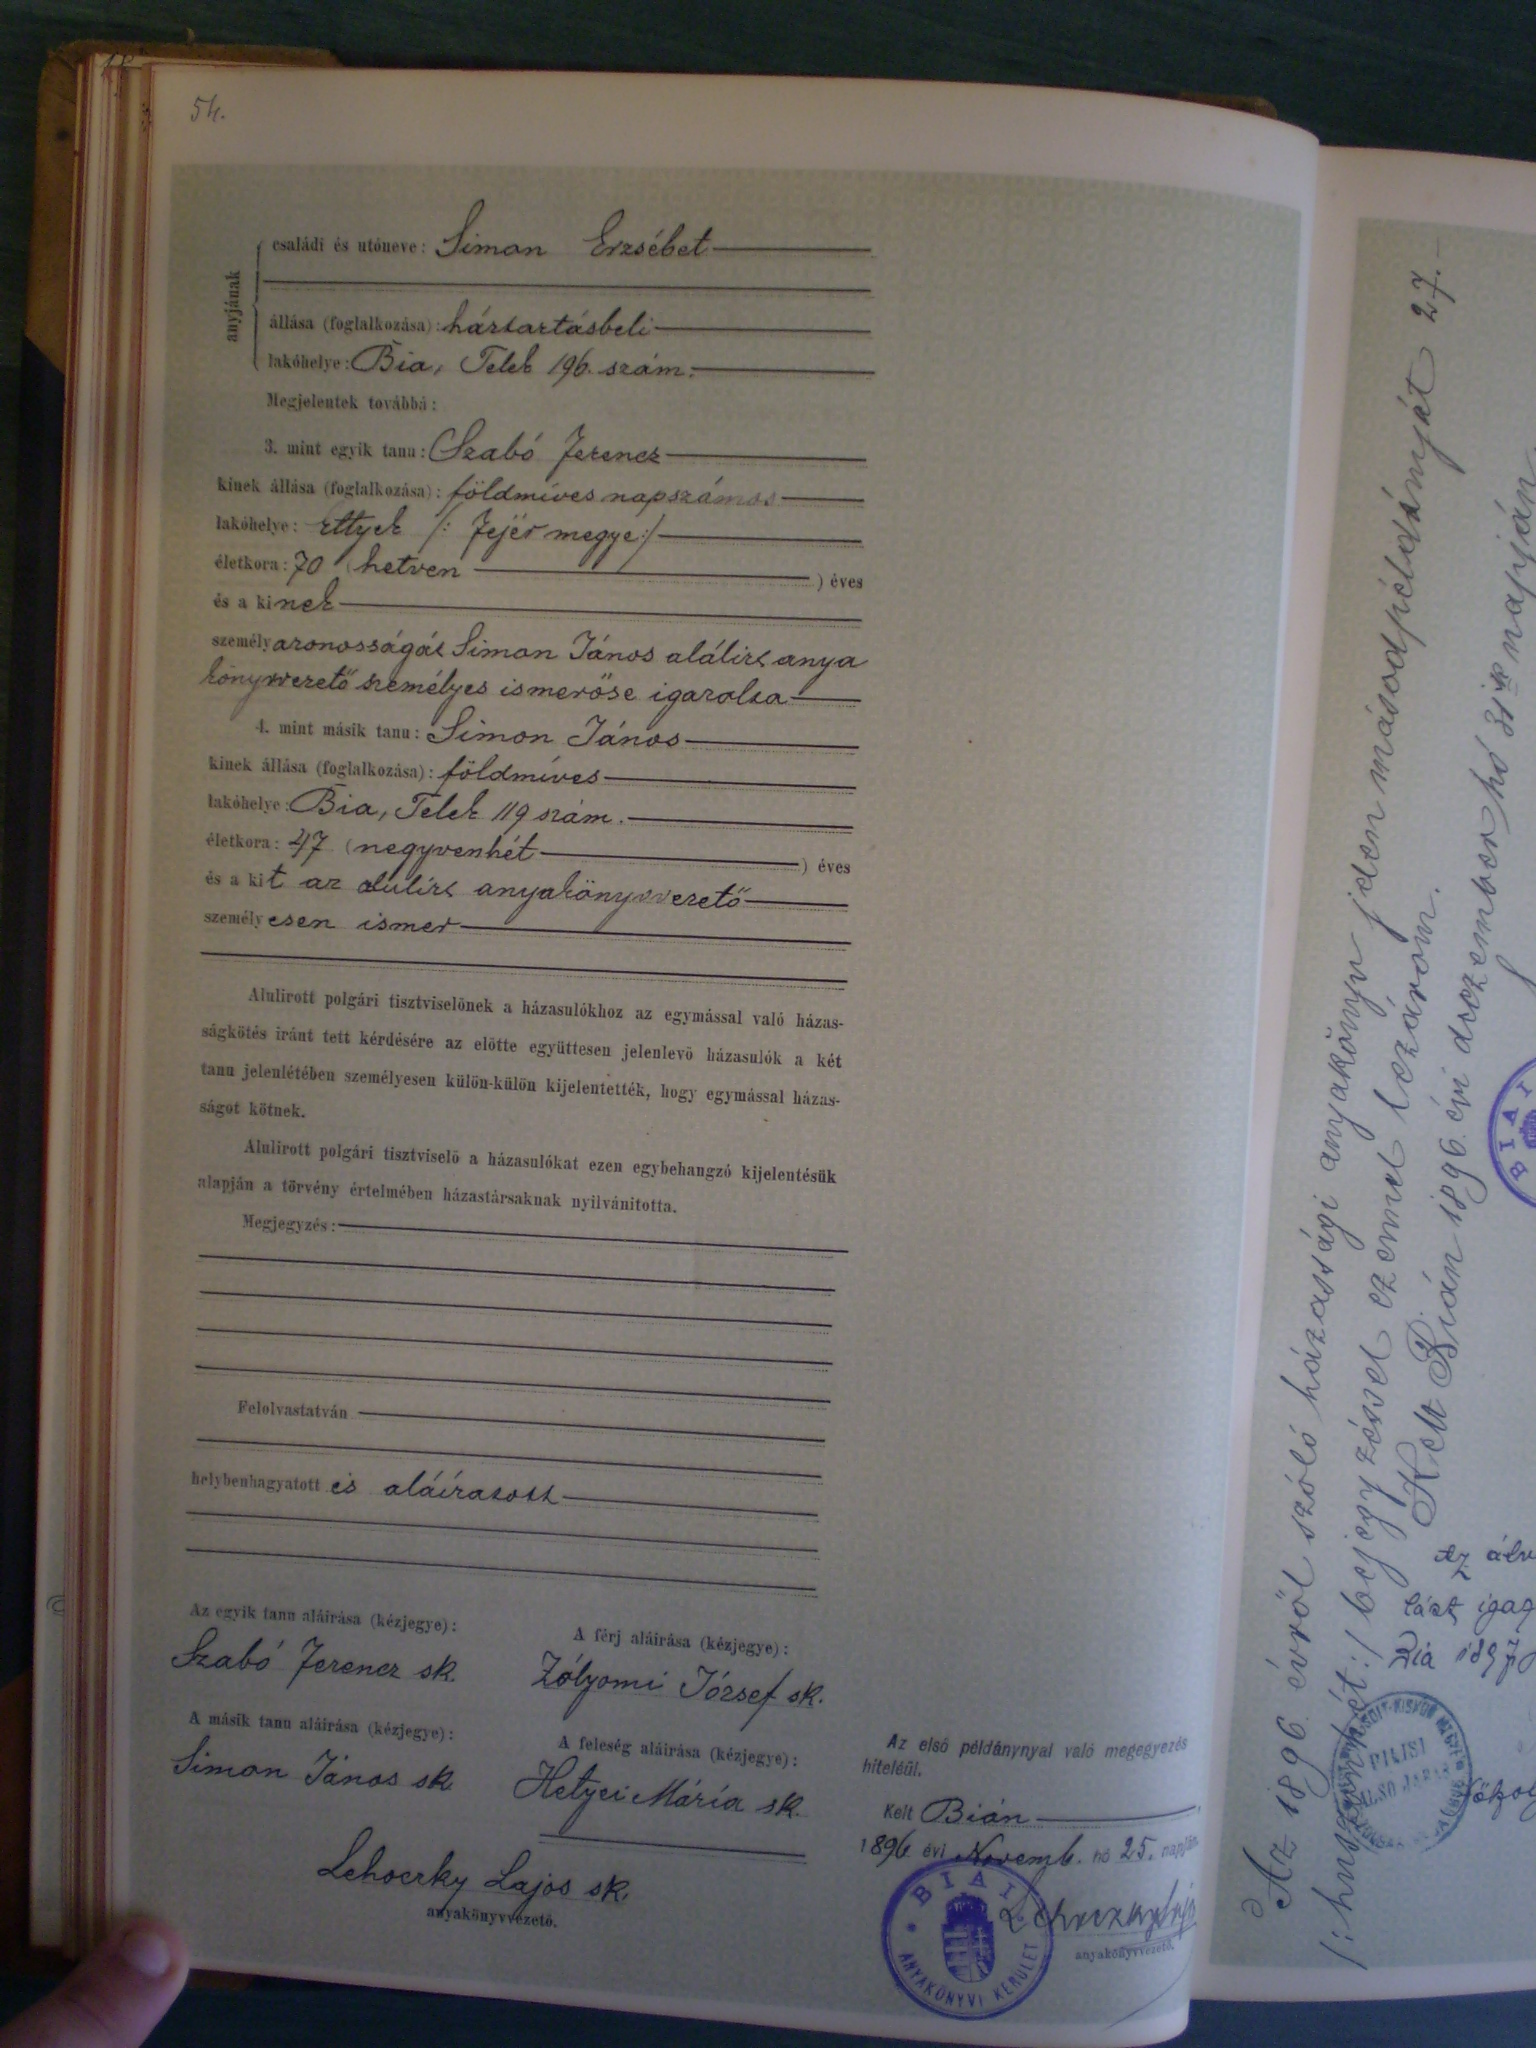 54.
anyjának
családi és utóneve: Simon Erzsébet
állása (foglalkozása): háztartásbeli
lakóhelye: Bia, Telek 196. szám.
Megjelentek továbbá:
3. mint egyik tanu: Szabó Ferencz
kinek állása (foglalkozása): földmíves napszámos
lakóhelye: Ettyek /: Fejér megye:/
életkora: 70 (hetven ) éves
és a kinek
személyazonosságát Simon János alálirt anya
könyvvezető személyes ismerőse igazolta
4. mint másik tanu: Simon János
kinek állása (foglalkozása): földmíves
lakóhelye: Bia, Telek 119 szám.
életkora: 47 (negyvenhét ) éves
és a kit az alulirt anyakönyvvezető
személyesen ismer
Alulirott polgári tisztviselönek a házasulókhoz az egymással való házas-
ságkötés iránt tett kérdésére az elötte együttesen jelenlevö házasulók a két
tanu jelenlétében személyesen külön-külön kijelentették, hogy egymással házas-
ságot kötnek.
Alulirott polgári tisztviselö a házasulókat ezen egybehangzó kijelentésük
alapján a törvény értelmében házastársaknak nyilvánitotta.
Megjegyzés:
Felolvastatván
helybenhagyatott és aláíratott
Az egyik tanu aláirása (kézjegye):
Szabó Ferencz sk.
A férj aláirása (kézjegye):
Zólyomi József sk.
A másik tanu aláirása (kézjegye):
Simon János sk
A feleség aláirása (kézjegye):
Hetyei Mária sk.
Lehoczky Lajos sk.
anyakönyvvezetö.
Az első példánynyal való megegyezés
hiteléül.
Kelt Bián
1896 évi Novemb. hó 25. napján
Lehoczky Lajos
anyakönyvvezető.
BIAI
ANYAKÖNYVI KERÜLET
Az 1896. évről szóló házassági anyakönyv jelen másodpéldányját 27.
/:huszonhét:/ bejegyzéssel ezennel lezárom.
Kelt Bián 1896. évi deczember hó 31ik napján
BIAI
Az
igaz
Bia 1897
PILISI
ALSÓ JÁRÁS